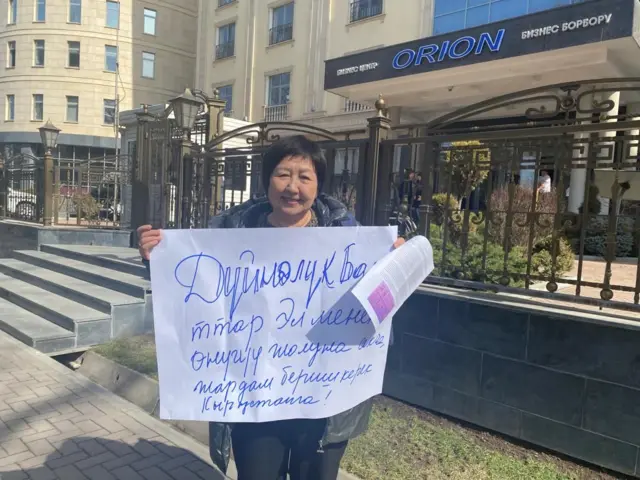 БИЗНЕС ЦЕНТР ORION БИЗНЕС БОРБОРУ
Дүймөлүк Ба
ттар Эл менен
өнүгүү жолуна
жардам бериш керек
Кыргызстанга!